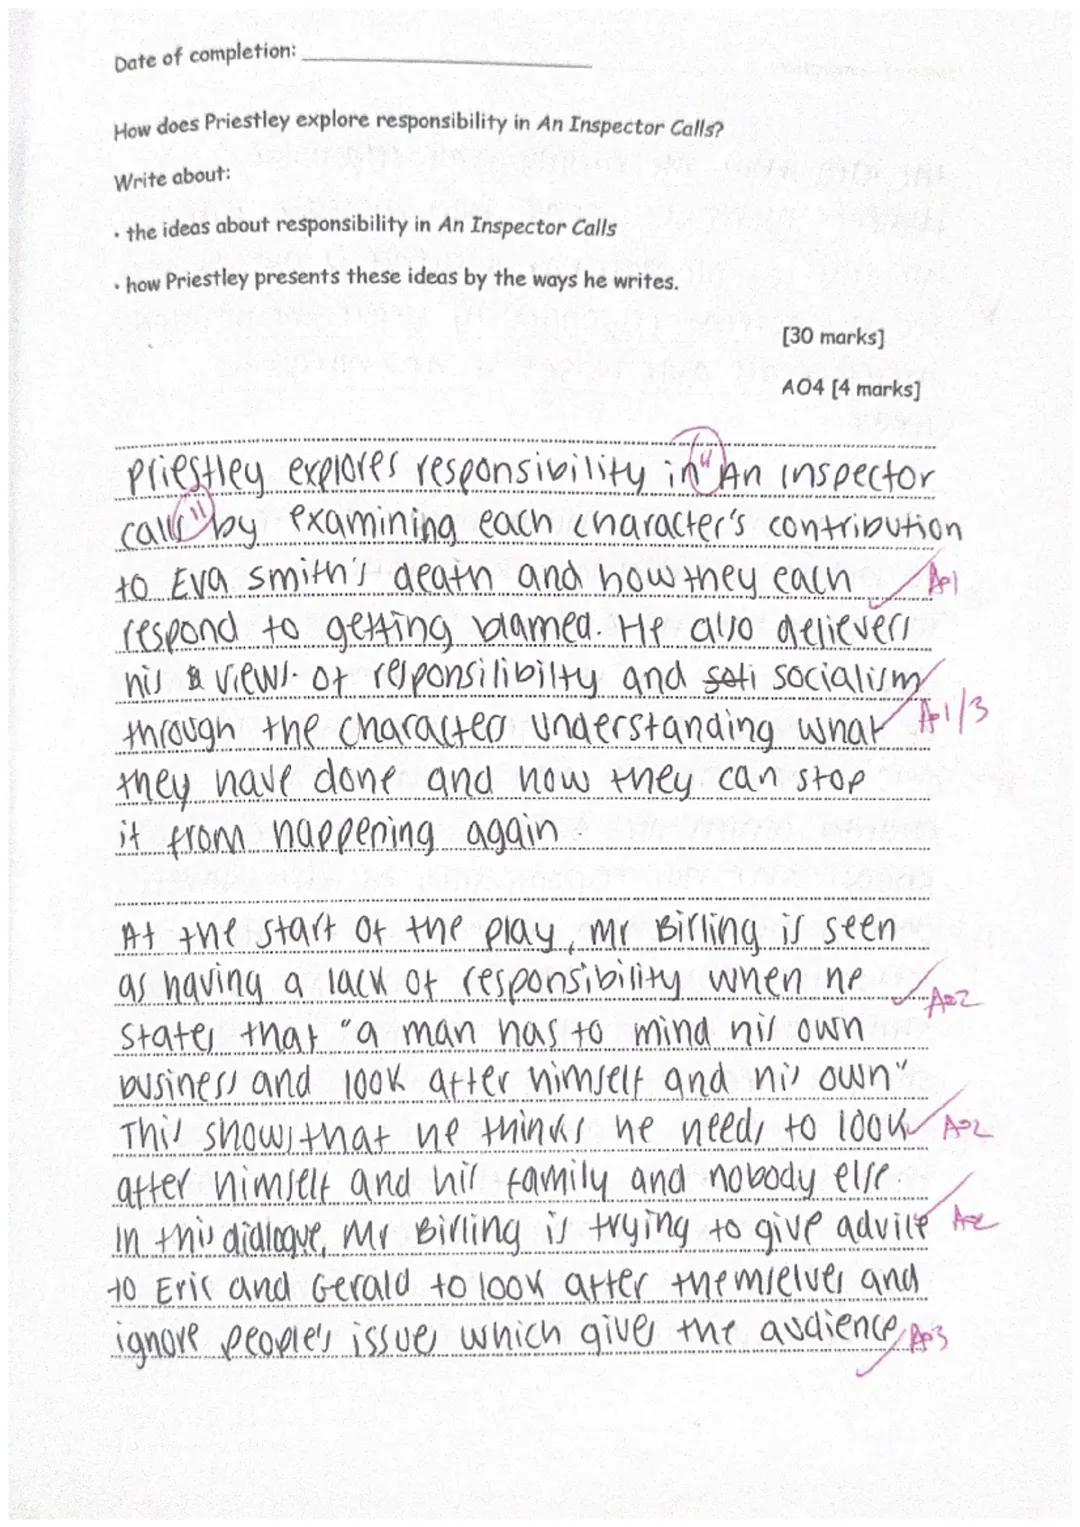 Date of completion:
How does Priestley explore responsibility in An Inspector Calls?
Write about:
· the ideas about responsibility in An Inspector Calls
· how Priestley presents these ideas by the ways he writes.
[30 marks]
AO4 [4 marks]
Priestley explores responsibility in "An inspector
calls" by examining each character's contribution
to Eva smith's death and how they each AO1
respond to getting blamed. He also delievers
his views. of responsilibilty and soti socialism
through the characters understanding what AO1/3
they have done and how they can stop
it from happening again.
At the start of the play, Mr Birling is seen
as having a lack of responsibility when he AO2
states that "a man has to mind his own
business and look after himself and his own"
This shows that he thinks he needs to look AO2
after himself and his family and nobody else.
In this dialogue, Mr Birling is trying to give advice AO2
to Eric and Gerald to look after themselves and
ignore people's issues which gives the audience AO3